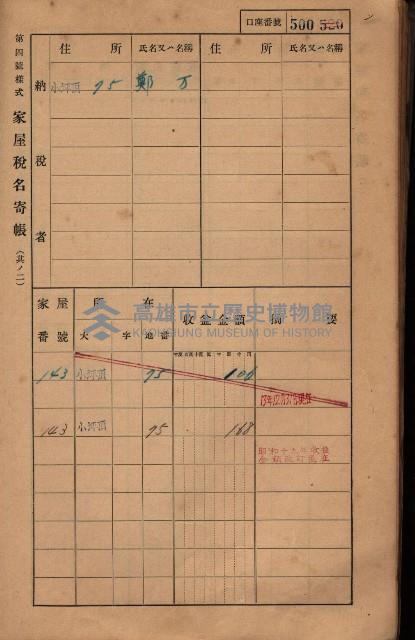 口座番號 500 520
第四號樣式 家屋稅名寄帳 (其ノ二)
納稅者
住所 氏名又ハ名稱 住所 氏名又ハ名稱
小河頂 95 鄭万
家屋番號 所在 收益金額 摘要
大字 地番
高雄市立歷史博物館
KAOHSIUNG MUSEUM OF HISTORY
143 小河頂 95 106
143 小河頂 95 168
昭和十九年收益